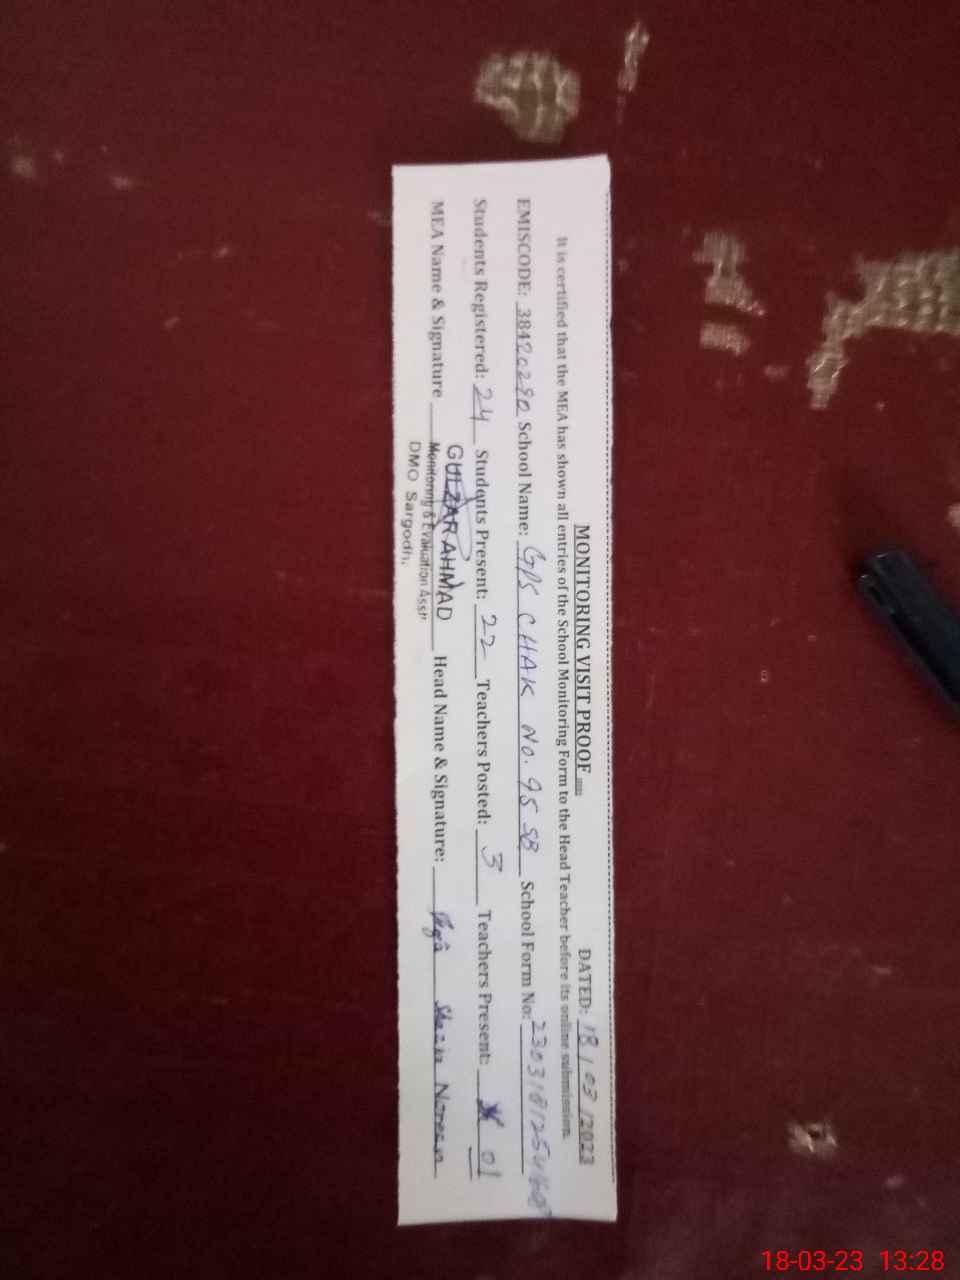 MONITORING VISIT PROOF
DATED: 18/03/2023
It is certified that the MEA has shown all entries of the School Monitoring Form to the Head Teacher before its online submission.
EMISCODE: 38420290 School Name: GPS CHAK No. 95 SB School Form No:
Students Registered: 24 Students Present: 22 Teachers Posted: 3 Teachers Present: 01
MEA Name & Signature GULZAR AHMAD Head Name & Signature: Shazia Noreen
Monitoring & Evaluation Asstt
DMO Sargodh
18-03-23 13:28